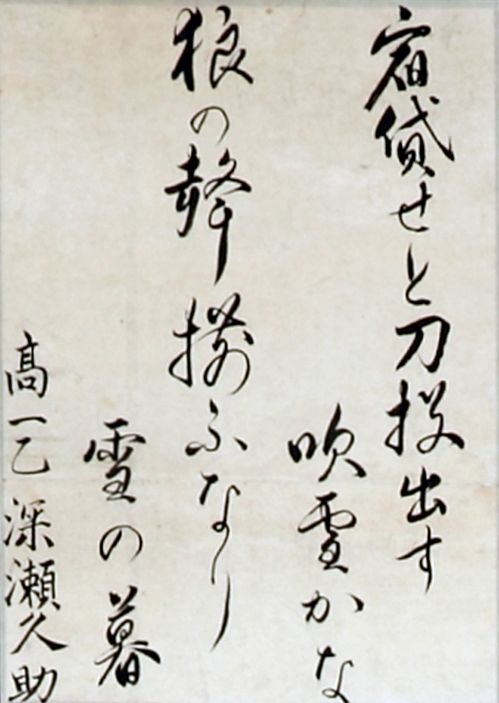 宿貸せと刀投出す
吹雪かな
狼の聲揃ふなり
雪の暮
高一乙 深瀬久助